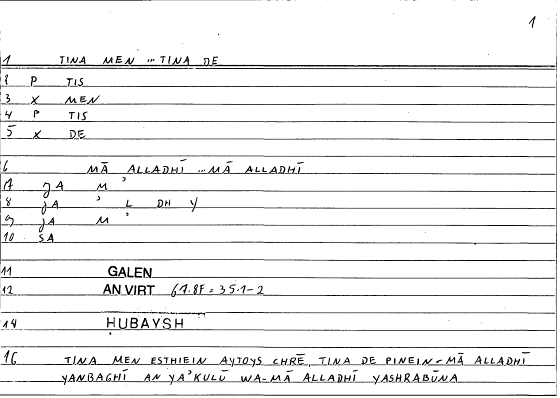 1
1 TINA MEN ... TINA DE
2 P TIS
3 X MEN
4 P TIS
5 X DE
6 MĀ ALLADHĪ ... MĀ ALLADHĪ
7 JA M ʾ
8 JA ʾ L DH Y
9 JA M ʾ
10 SA
11 GALEN
12 AN VIRT 67.8F = 35.1-2
14 HUBAYSH
16 TINA MEN ESTHIEIN AYTOYS CHRĒ, TINA DE PINEIN - MĀ ALLADHĪ
YANBAGHĪ AN YAʾKULŪ WA-MĀ ALLADHĪ YASHRABŪNA